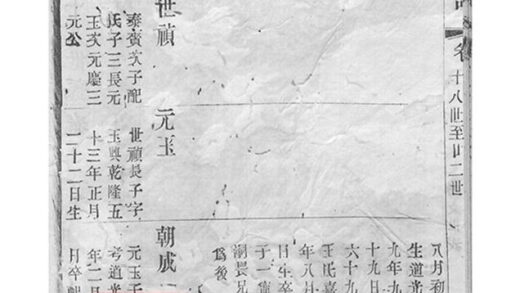 名 十八世至廿二世
八月初
生道光
九年九
十九日
六十九
氏嘉
年八月
日生卒
子一
嗣長兄
爲後
世禎
泰賓次子配
氏子三長元
玉次元慶三
元公
元玉
世禎長子字
玉興乾隆五
十三年正月
二十二日生
朝成
元玉子
道光
年二
月卒